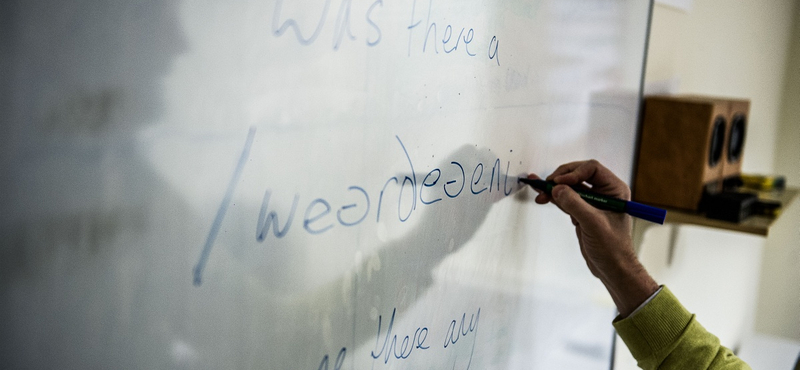 Was there a
/weərðeəeni
there any